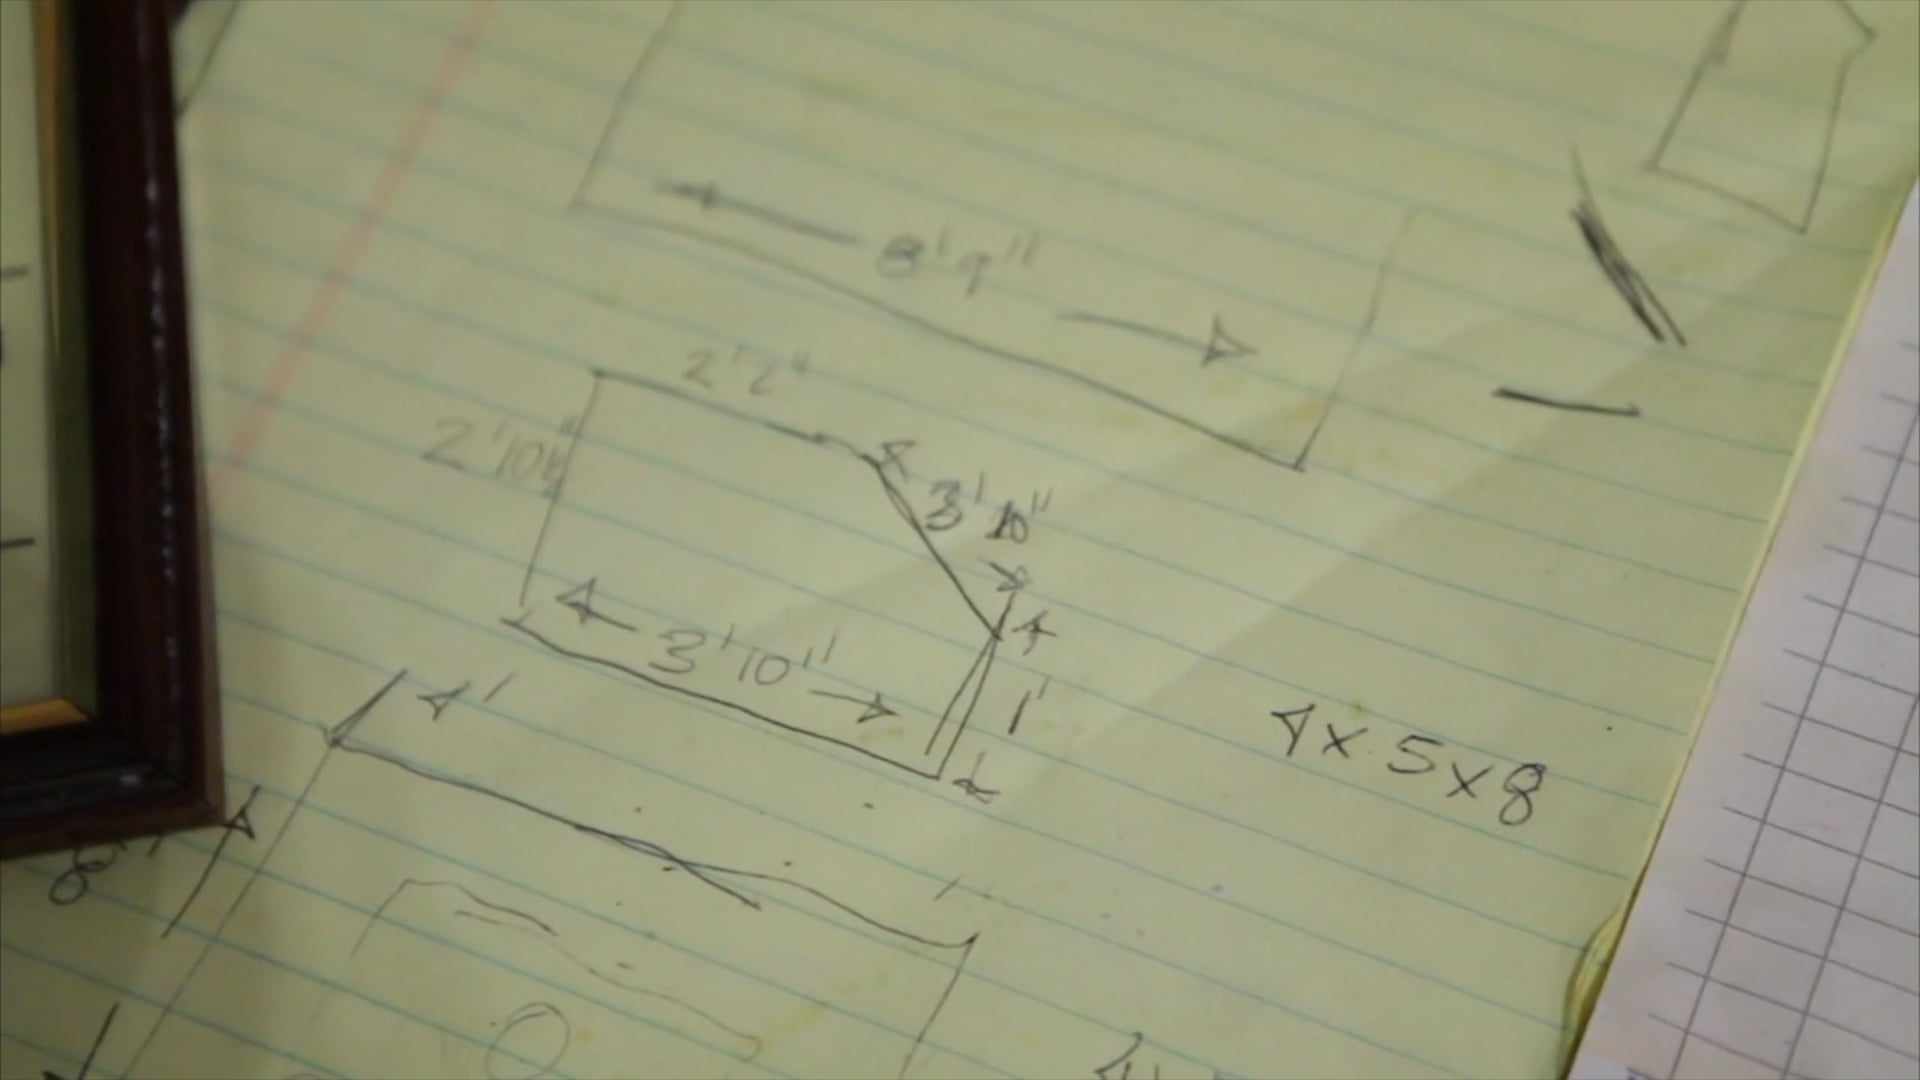 8'9"
2'2"
2'10½"
3'10"
3'10"
1'
4'
4x5x8
8'